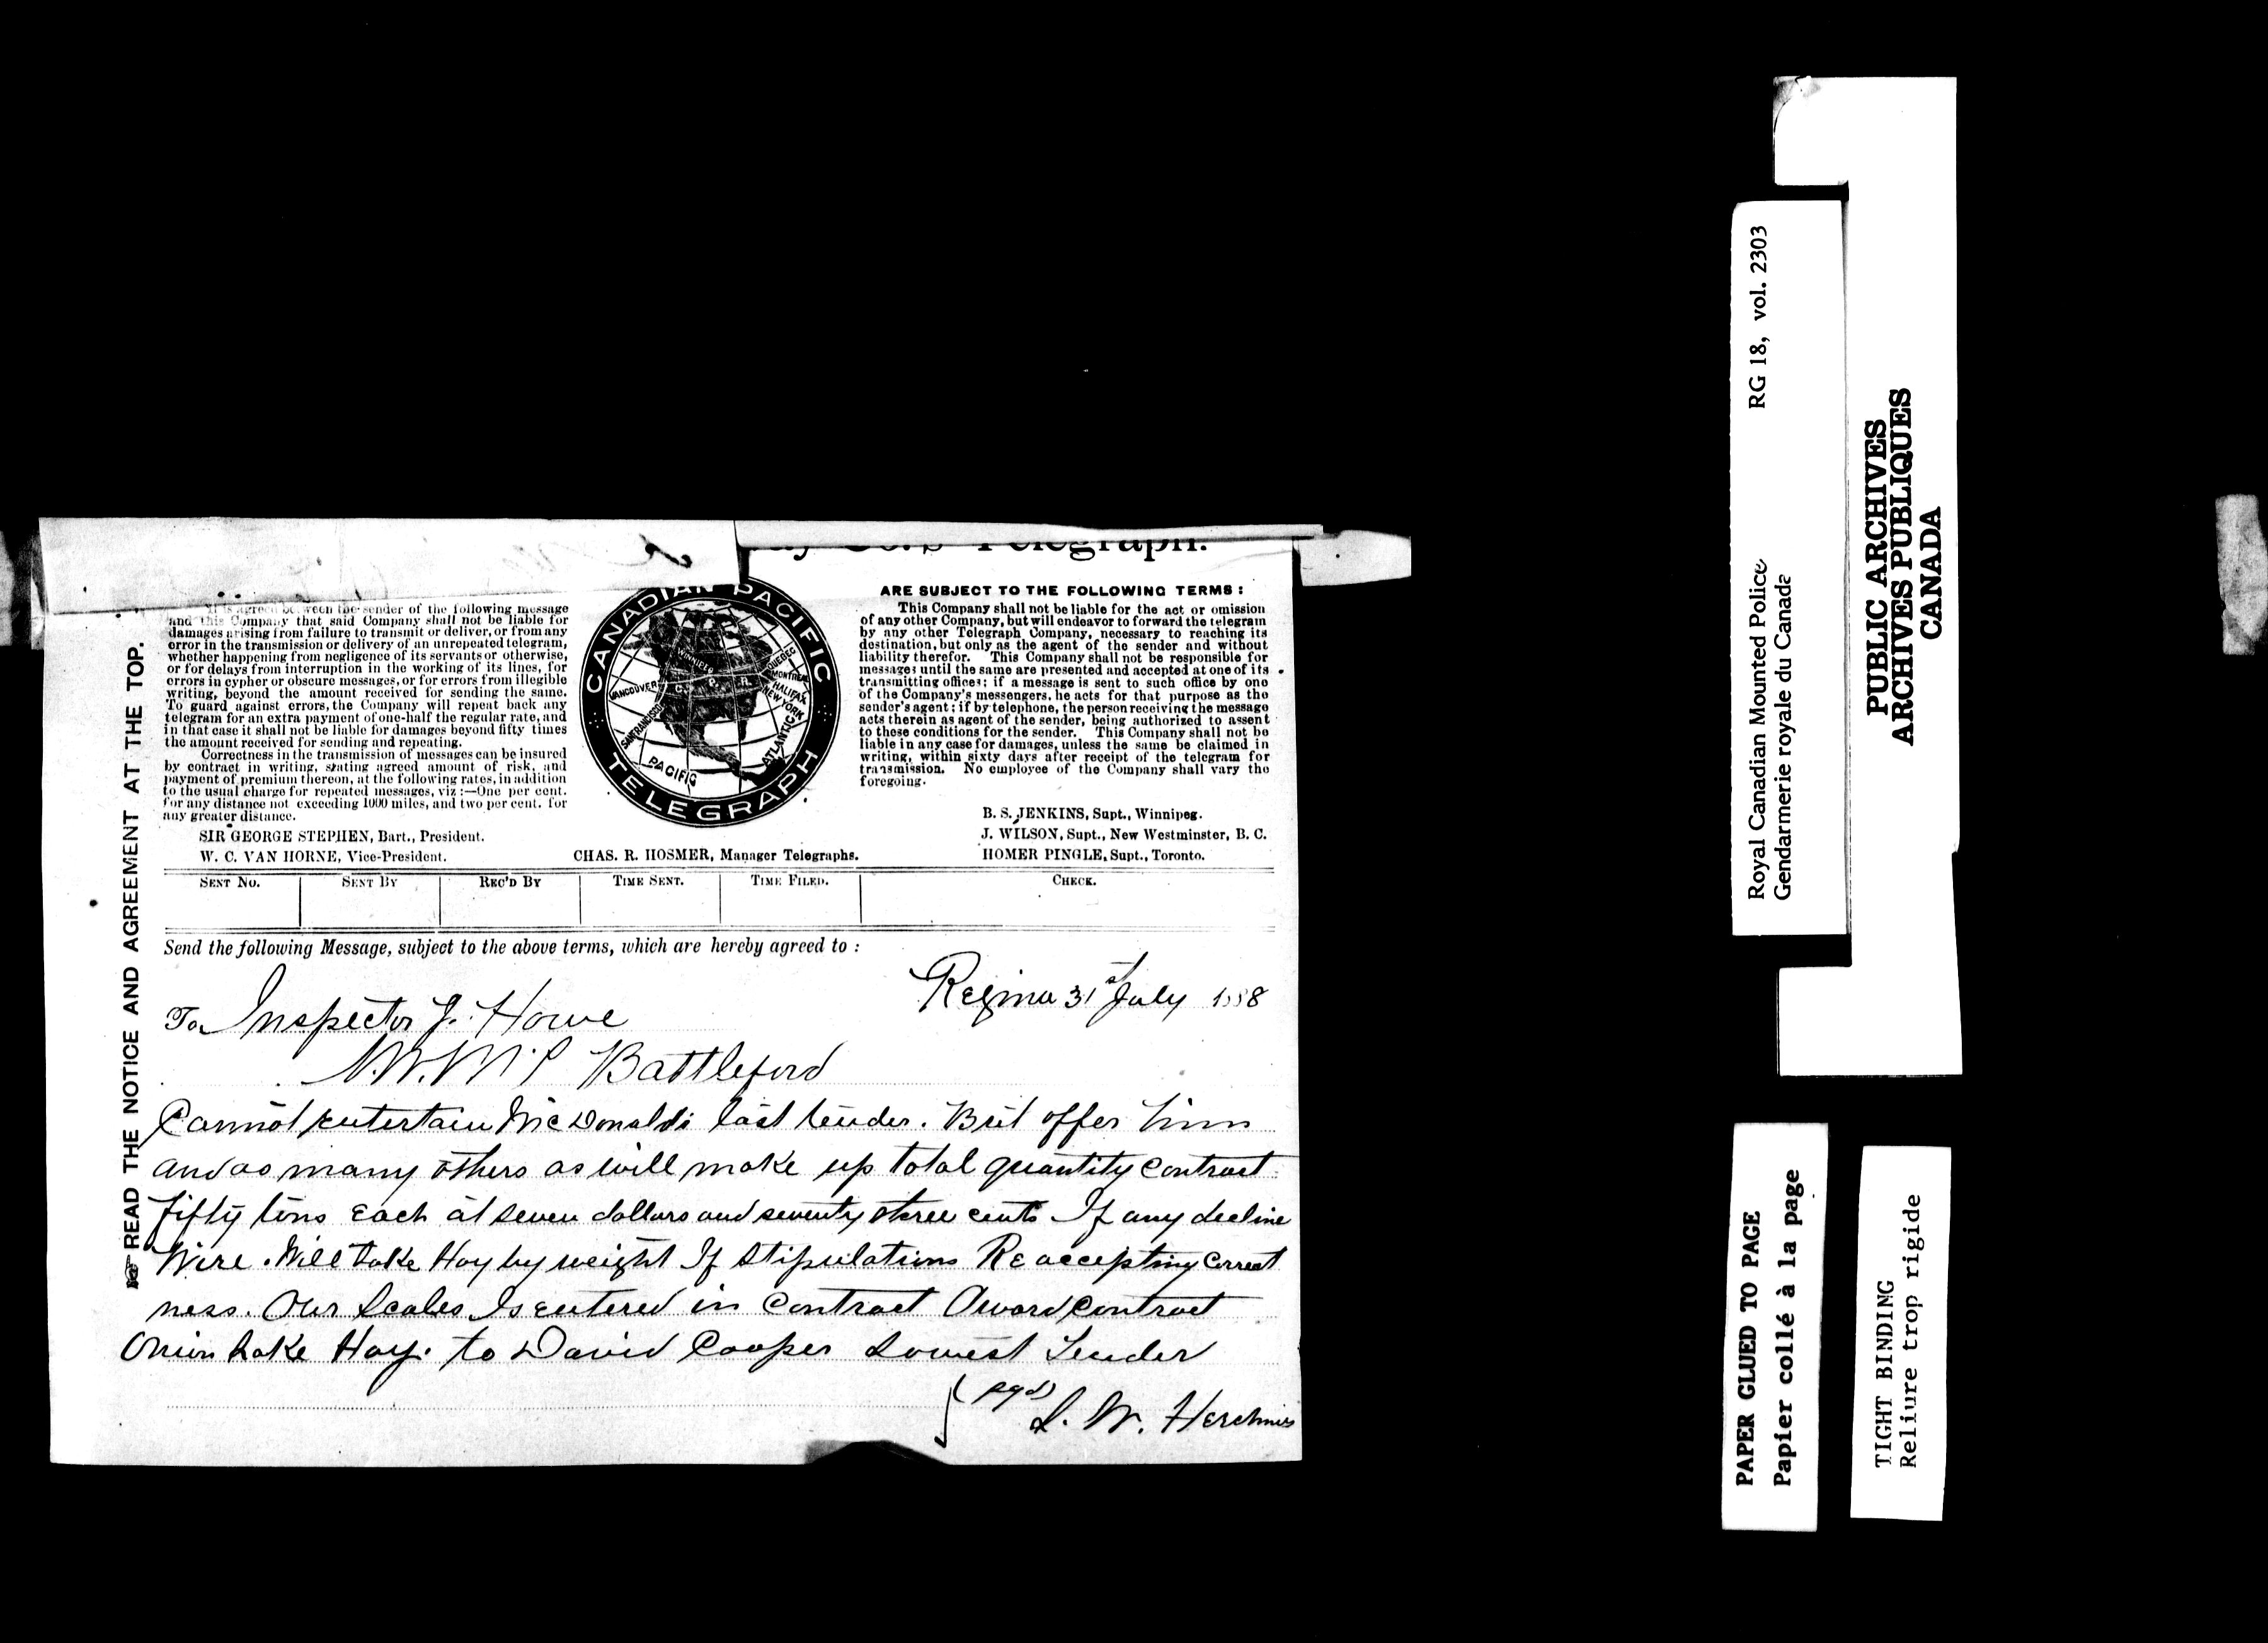 Co.'s Telegraph.
It is agreed between the sender of the following message
and this Company that said Company shall not be liable for
damages arising from failure to transmit or deliver, or from any
error in the transmission or delivery of an unrepeated telegram,
whether happening from negligence of its servants or otherwise,
or for delays from interruption in the working of its lines, for
errors in cypher or obscure messages, or for errors from illegible
writing, beyond the amount received for sending the same.
To guard against errors, the Company will repeat back any
telegram for an extra payment of one-half the regular rate, and
in that case it shall not be liable for damages beyond fifty times
the amount received for sending and repeating.
Correctness in the transmission of messages can be insured
by contract in writing, stating agreed amount of risk, and
payment of premium thereon, at the following rates, in addition
to the usual charge for repeated messages, viz:—One per cent.
for any distance not exceeding 1000 miles, and two per cent. for
any greater distance.
SIR GEORGE STEPHEN, Bart., President.
W. C. VAN HORNE, Vice-President.
CANADIAN PACIFIC
TELEGRAPH
WINNIPEG
QUEBEC
MONTREAL
HALIFAX
NEW YORK
VANCOUVER
C. P. R.
SAN FRANCISCO
ATLANTIC
PACIFIC
CHAS. R. HOSMER, Manager Telegraphs.
ARE SUBJECT TO THE FOLLOWING TERMS:
This Company shall not be liable for the act or omission
of any other Company, but will endeavor to forward the telegram
by any other Telegraph Company, necessary to reaching its
destination, but only as the agent of the sender and without
liability therefor. This Company shall not be responsible for
messages until the same are presented and accepted at one of its
transmitting offices; if a message is sent to such office by one
of the Company's messengers, he acts for that purpose as the
sender's agent; if by telephone, the person receiving the message
acts therein as agent of the sender, being authorized to assent
to these conditions for the sender. This Company shall not be
liable in any case for damages, unless the same be claimed in
writing, within sixty days after receipt of the telegram for
transmission. No employee of the Company shall vary the
foregoing.
B. S. JENKINS, Supt., Winnipeg.
J. WILSON, Supt., New Westminster, B. C.
HOMER PINGLE, Supt., Toronto.
SENT NO. SENT BY REC'D BY TIME SENT. TIME FILED. CHECK.
Send the following Message, subject to the above terms, which are hereby agreed to:
READ THE NOTICE AND AGREEMENT AT THE TOP.
Regina 31st July 1888
To Inspector J. Howe
N.W.M.P Battleford
Cannot entertain McDonalds last tender. But offer him
and as many others as will make up total quantity contract
fifty tons each at seven dollars and seventy three cents If any decline
Wire. Will take Hay by weight If stipulations Re accepting correct
ness. Our Scales Is entered in contract Award contract
Onion Lake Hay. to David Cooper Lowest Tender
(sgd)
L. W. Herchmer
Royal Canadian Mounted Police RG 18, vol. 2303
Gendarmerie royale du Canada
PUBLIC ARCHIVES
ARCHIVES PUBLIQUES
CANADA
PAPER GLUED TO PAGE
Papier collé à la page
TIGHT BINDING
Reliure trop rigide